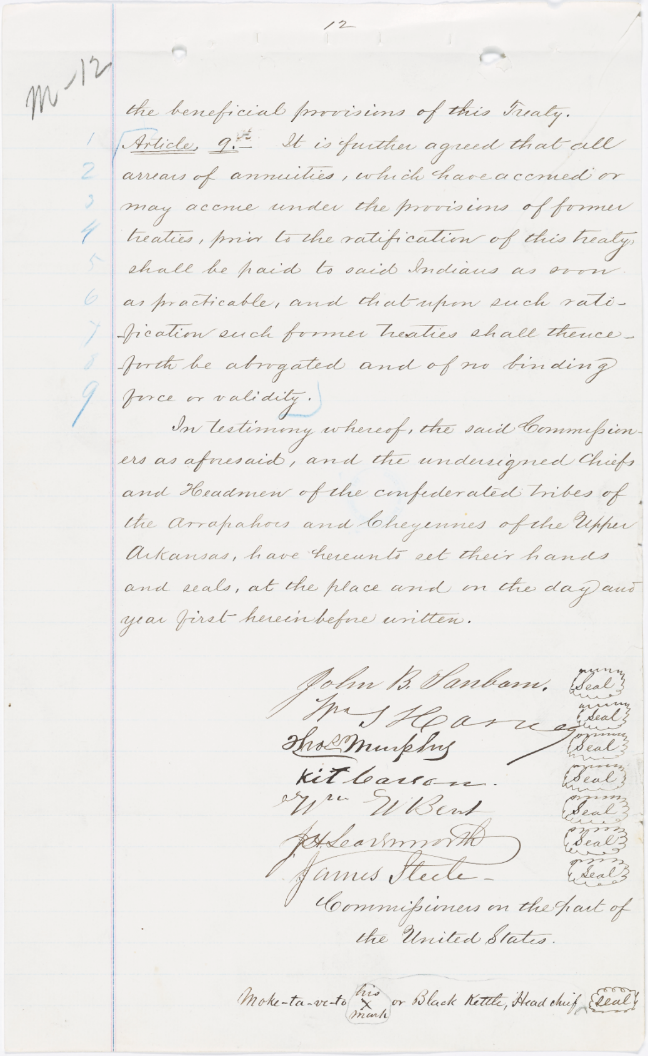 12
M-12
the beneficial provisions of this Treaty.
1 Article, 9.th It is further agreed that all
2 arrears of annuities, which have accrued or
3 may accrue under the provisions of former
4 treaties, prior to the ratification of this treaty,
5 shall be paid to said Indians as soon
6 as practicable, and that upon such rati-
7 fication such former treaties shall thence-
8 forth be abrogated and of no binding
9 force or validity.
In testimony whereof, the said Commission-
ers as aforesaid, and the undersigned Chiefs
and Headmen of the confederated tribes of
the Arrapahoes and Cheyennes of the Upper
Arkansas, have hereunto set their hands
and seals, at the place and on the day and
year first hereinbefore written.
John B. Sanborn. Seal
Wm S Harney Seal
Thos Murphy Seal
Kit Carson. Seal
Wm W Bent Seal
J H Leavenworth Seal
James Steele- Seal
Commissioners on the part of
the United States.
Moke-ta-ve-to his X mark or Black Kettle, Head chief seal